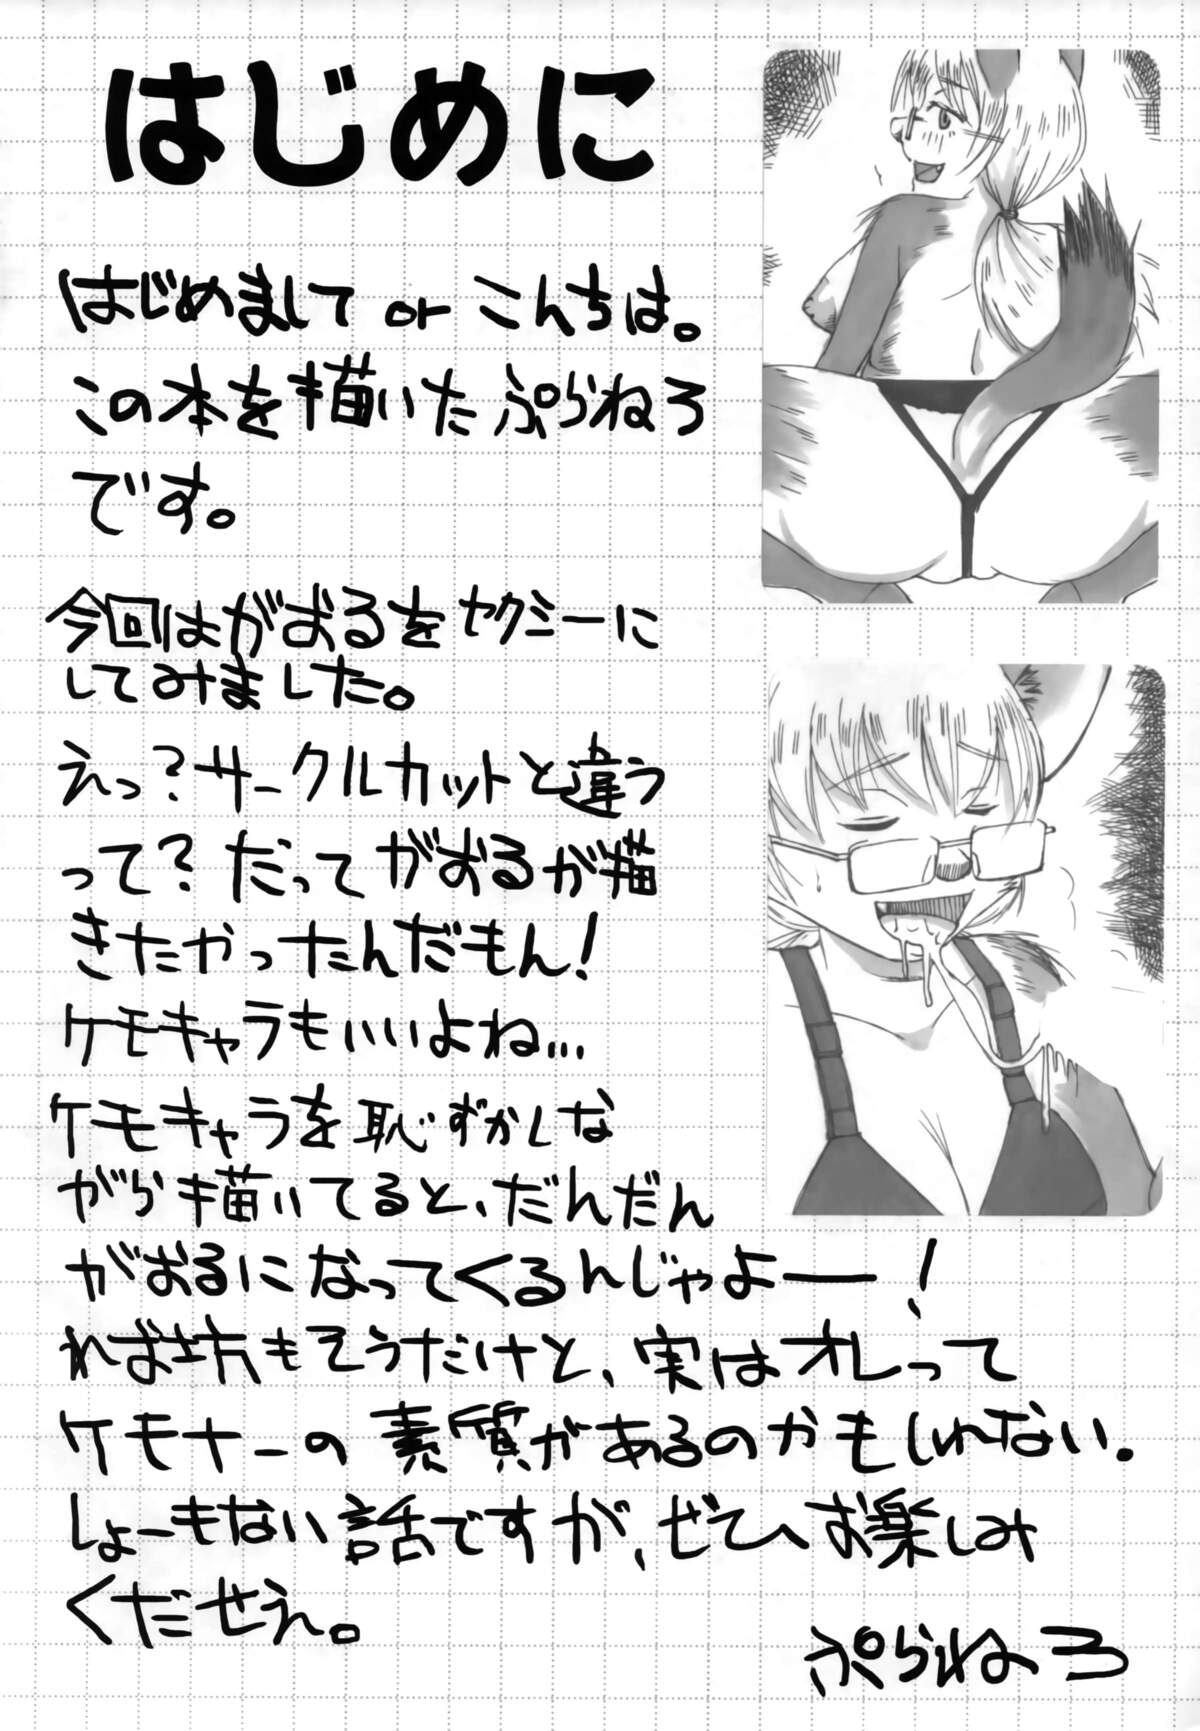 はじめに
はじめまして or こんちは。
この本を描いたぷらねろ
です。
今回はがおるをセクシーに
してみました。
えっ?サークルカットと違う
って?だってがおるが描
きたかったんだもん!
ケモキャラもいいよね...
ケモキャラを恥ずかしな
がら描いてると、だんだん
がおるになってくるんじゃよー!
ればさ方もそうだけと、実はオレって
ケモナーの素質があるのかもしれない。
しょーもない話ですが、ぜひお楽しみ
くだせえ。
ぷらねろ